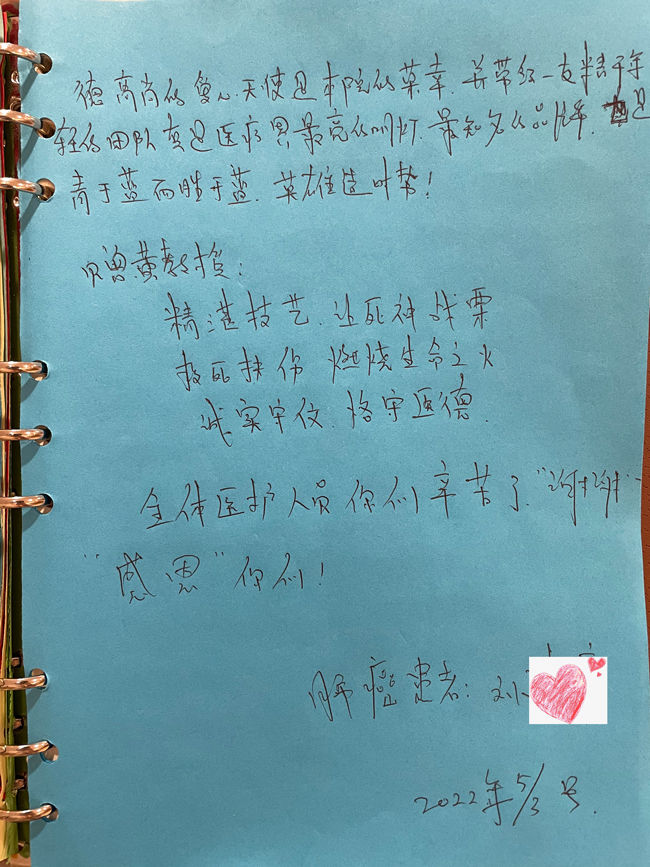 德高尚的复心天使是本院的荣幸.并带领一支精干年
轻的团队真是医疗界最亮的明灯.最知名的品牌.是
青于蓝而胜于蓝.英雄造时势!
贝曾黄教授:
精湛技艺.让死神战栗
救死扶伤 燃烧生命之火
诚实守仪.恪守医德.
全体医护人员你们辛苦了."谢谢"
"感恩"你们!
肺癌患者:刘
2022年5/3号.